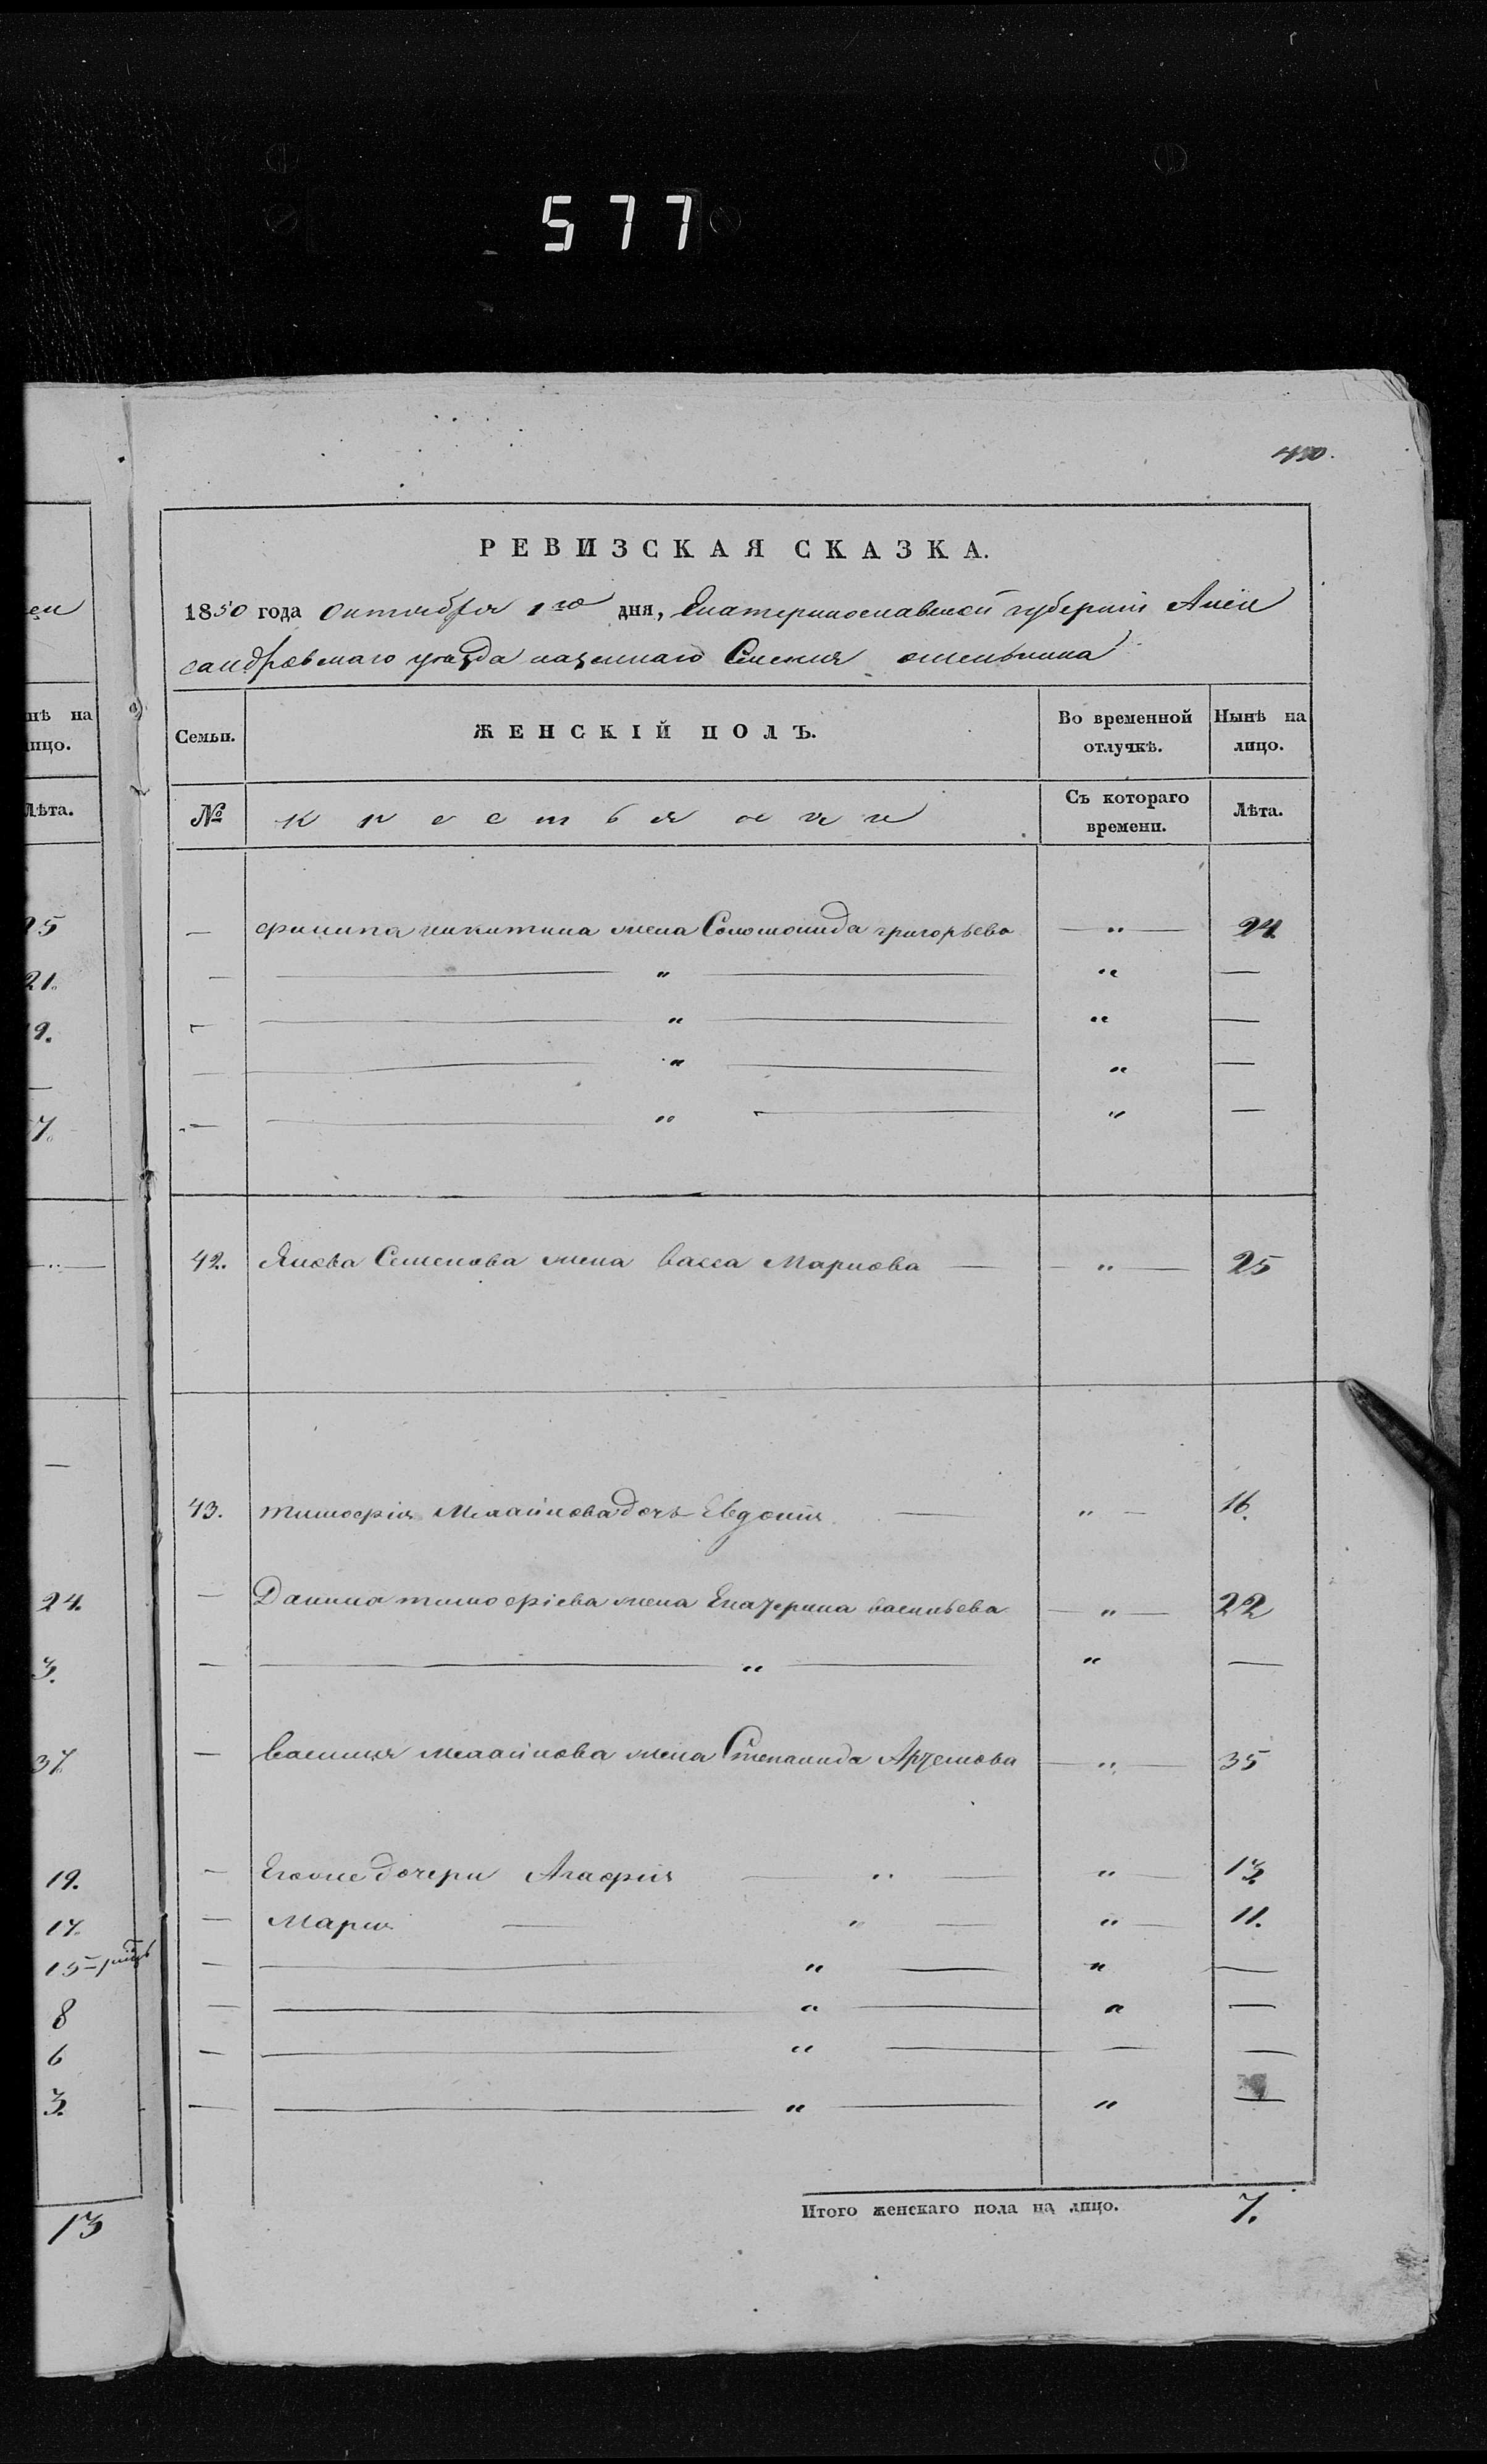 577
450.
РЕВИЗСКАЯ СКАЗКА.
1850 года Октября 1го дня, Екатеринославской губернiи Алек
сандровскаго уезда казеннаго Селенiя
ен
нѣ на
лицо.
Лѣта.
Семьи. ЖЕНСКІЙ ПОЛЪ. Во временной отлучкѣ. Нынѣ на лицо.
№ крестьянки Съ котораго времени. Лѣта.
— филипа никитина жена Соломонида григорьева — " — 24
— — " — " —
— — " — " —
— — " — " —
— — " — " —
42. Якова Семенова жена васса Маркова — — " — 25
43. тимофiя дочь Евдокiя — " — 16.
— Данила тимофiева жена Екатерина васильева — " — 22
— — " — " —
— василия жена Степанида Артемова — " — 35
— Еговые дочери Агафия — " — " — 13.
— Мария — " — " — 11.
— — " — " —
— — " — " —
— — " — — —
— — " — " —
Итого женскаго пола на лицо. 7.
25
21.
19.
—
7.
—
24.
3.
37
19.
17.
15
8
6
3.
13